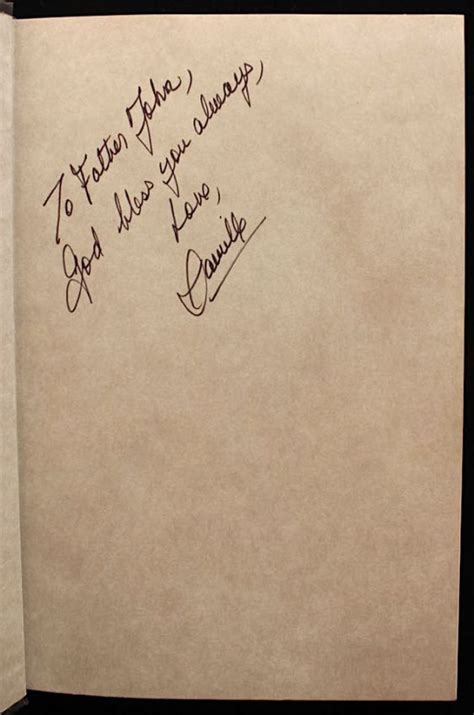 To Father John,
God bless you always,
Love,
Camille